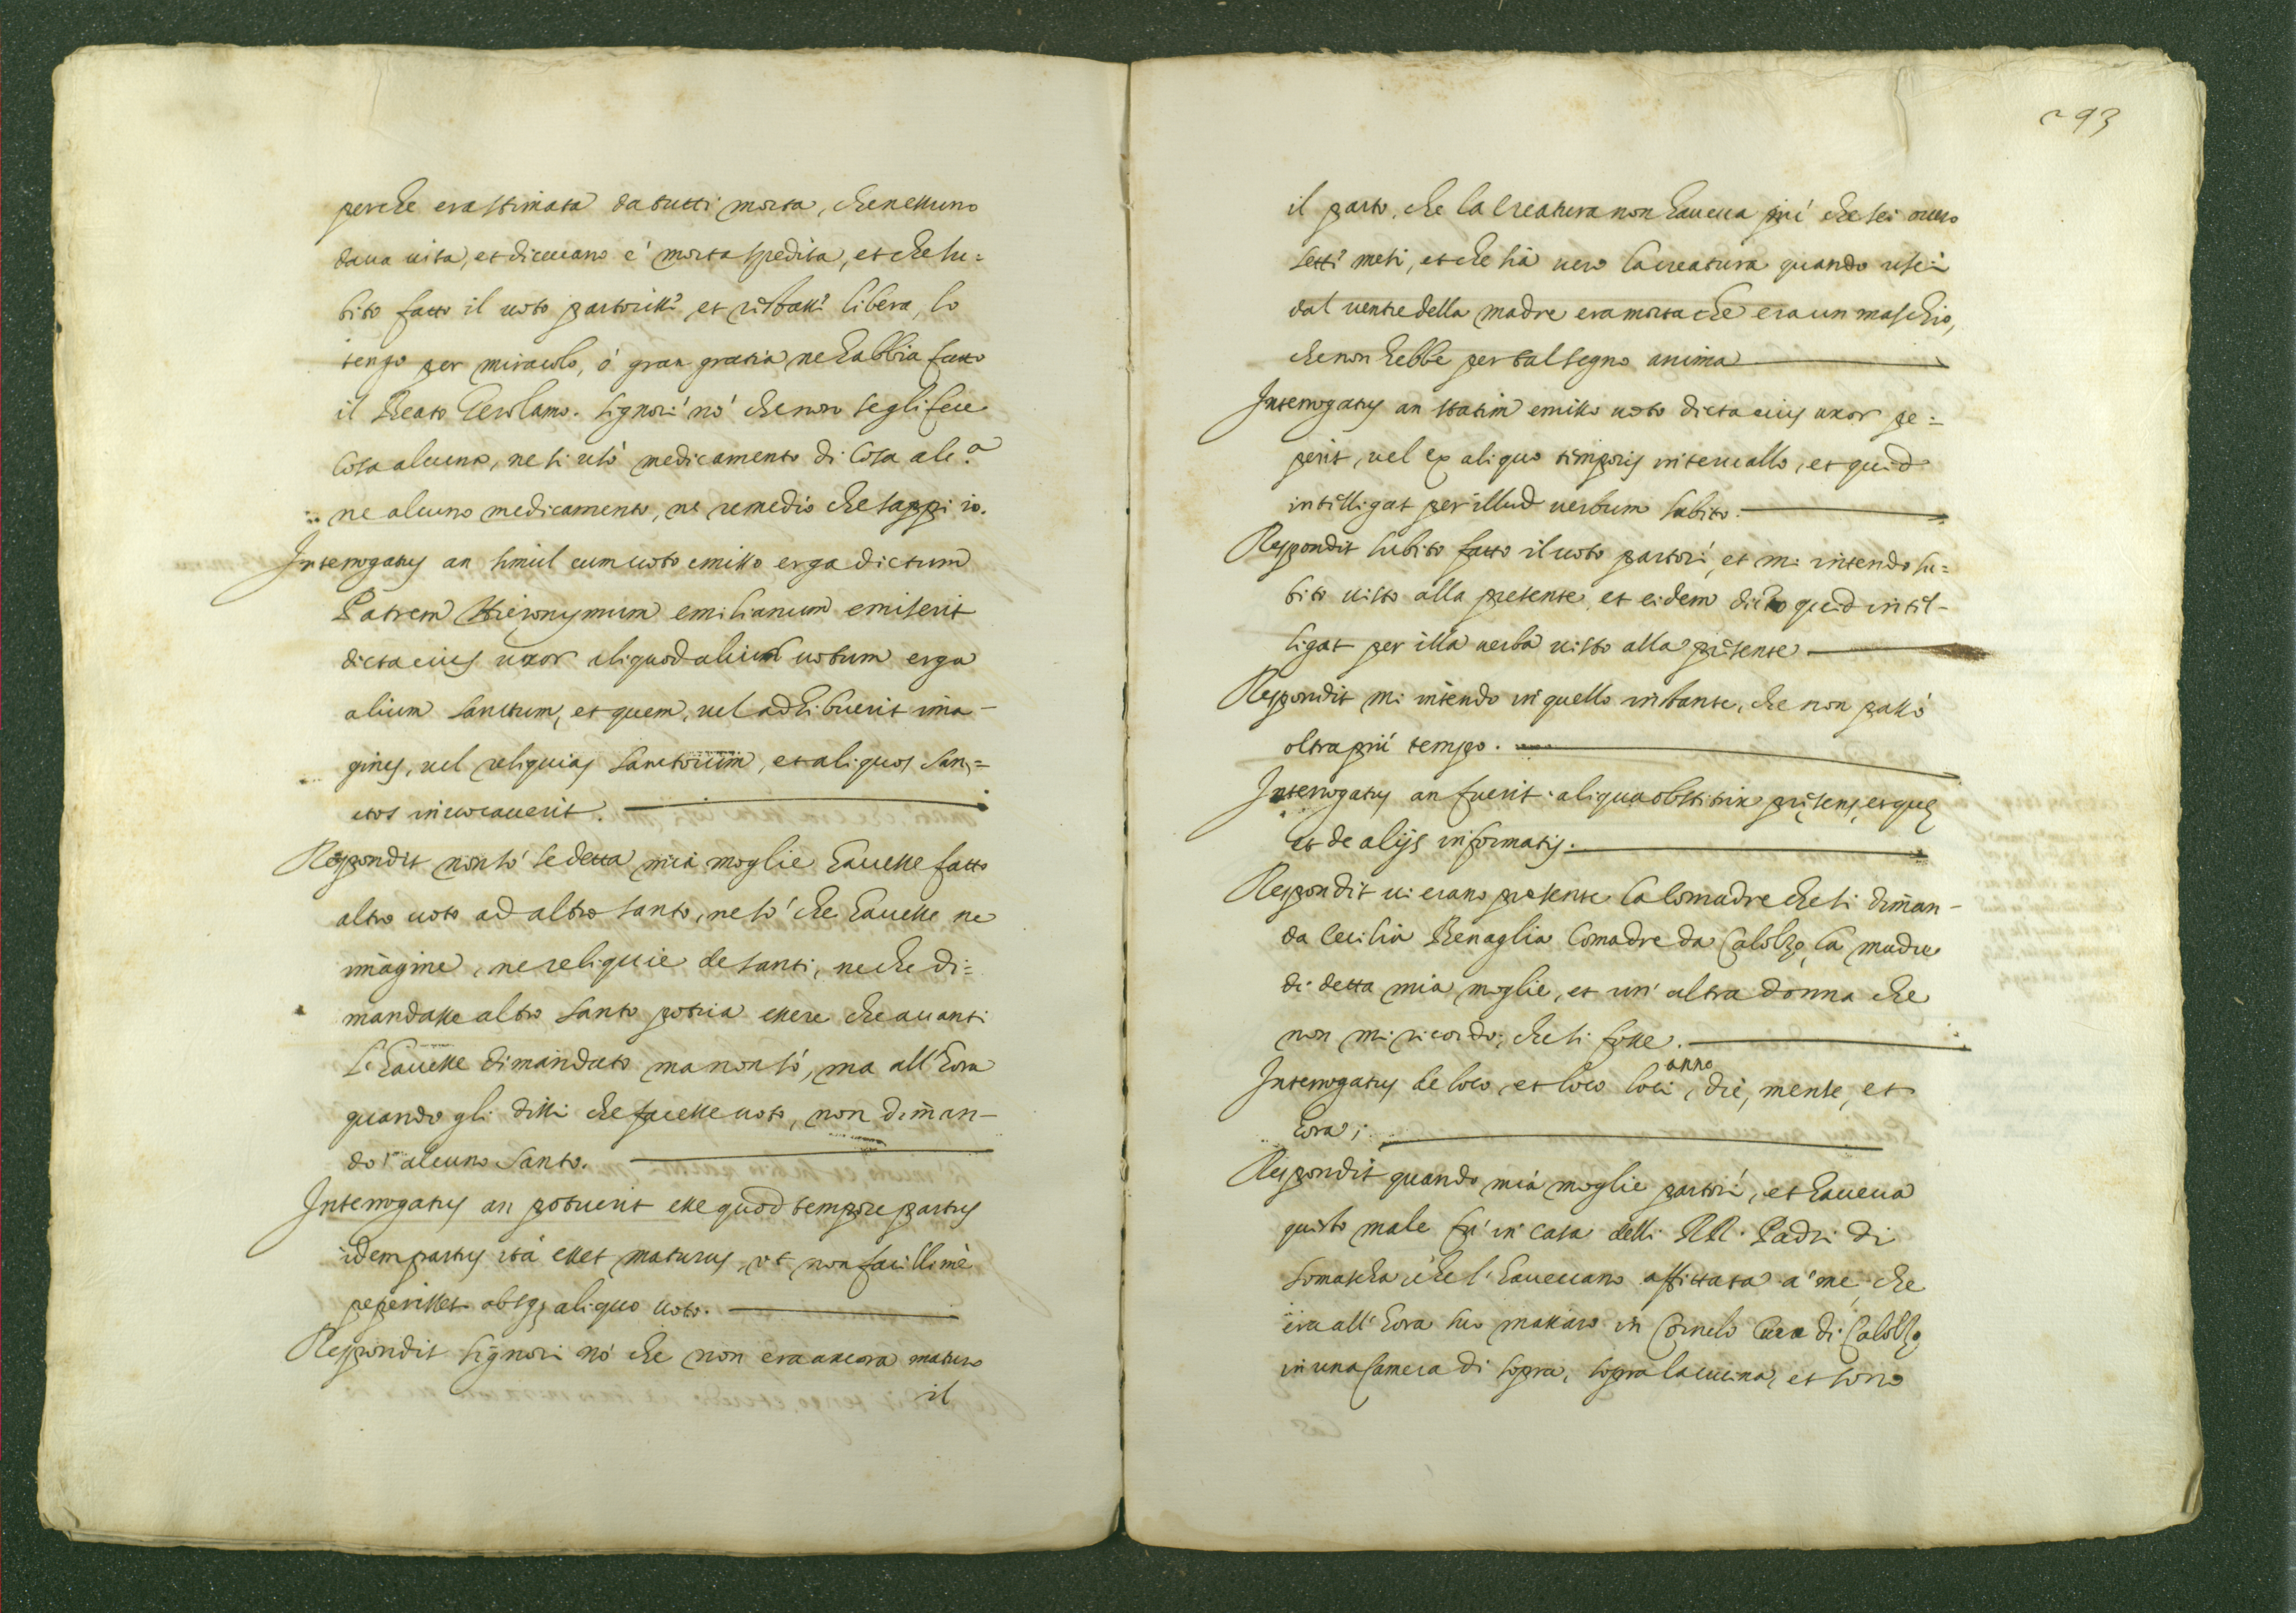 perche era stimata da tutti morta, che nessuno
daua uita, et diceuano è morta spedita, et che su=
bito fatto il uoto partorisse et restasse libera, lo
tengo per miracolo, ò gran gratia ne habbia fatto
il Beato Gerolamo. Signori nò che non se gli fece
cosa alcuna, ne si usò medicamento di cosa alc.ª
ne alcuno medicamento, ne remedio che sappi io.
Interrogatus an simul cum uoto emisso erga dictum
Patrem Hieronymum emilianum emiserit
dicta eius uxor aliquod aliud uotum erga
alium sanctum, et quem, uel adhibuerit ima-
gines, uel reliquias sanctorum, et aliquos san=
ctos inuocauerit.
Respondit non sò se detta mia moglie hauesse fatto
altro uoto ad altro santo, ne sò che hauesse ne
imagine, ne reliquie de santi, ne che di=
mandasse altro santo potria essere che auanti
l'hauesse dimandato ma non sò, ma all'hora
quando gli dissi che facesse uoto, non diman-
dò alcuno santo.
Interrogatus an potuerit esse quod tempore partus
idem partus ità esset maturus, ut non facillimè
peperisset absq; aliquo uoto.
Respondit signori nò che non era ancora maturo
il
293
il parto, che la creatura non haueua più che sei ouero
setti mesi, et che sia uero la creatura quando uscì
dal uentre della madre era morta che era un maschio,
che non hebbe per tal segno anima
Interrogatus an statim emisso uoto dicta eius uxor pe=
perit, uel ex aliquo temporis interuallo, et quid
intelligat per illud uerbum subito.
Respondit subito fatto il uoto partorì, et mi intendo su=
bito uisto alla presente, et eidem dicto quid intel-
ligat per illa uerba uisto alla presente
Respondit mi intendo in quello instante, che non passò
oltra più tempo.
Interrogatus an fuerit aliqua obstetrix presens, et que
et de alijs informatis.
Respondit ui erano presente la comadre che si diman-
da Cecilia Benaglia Comadre da Calolzo, la madre
di detta mia moglie, et un' altra donna che
non mi ricordo, che si fosse.
Interrogatus de loco, et loco loci, anno die, mense, et
hora;
Respondit quando mia moglie partorì, et haueua
questo male fu in casa delli RR. Padri di
Somascha che l'haueuano affittata a me, che
era all' hora suo massaro in Cornelo Cura di Calolzo
in una camera di sopra, sopra la cucina, et sono